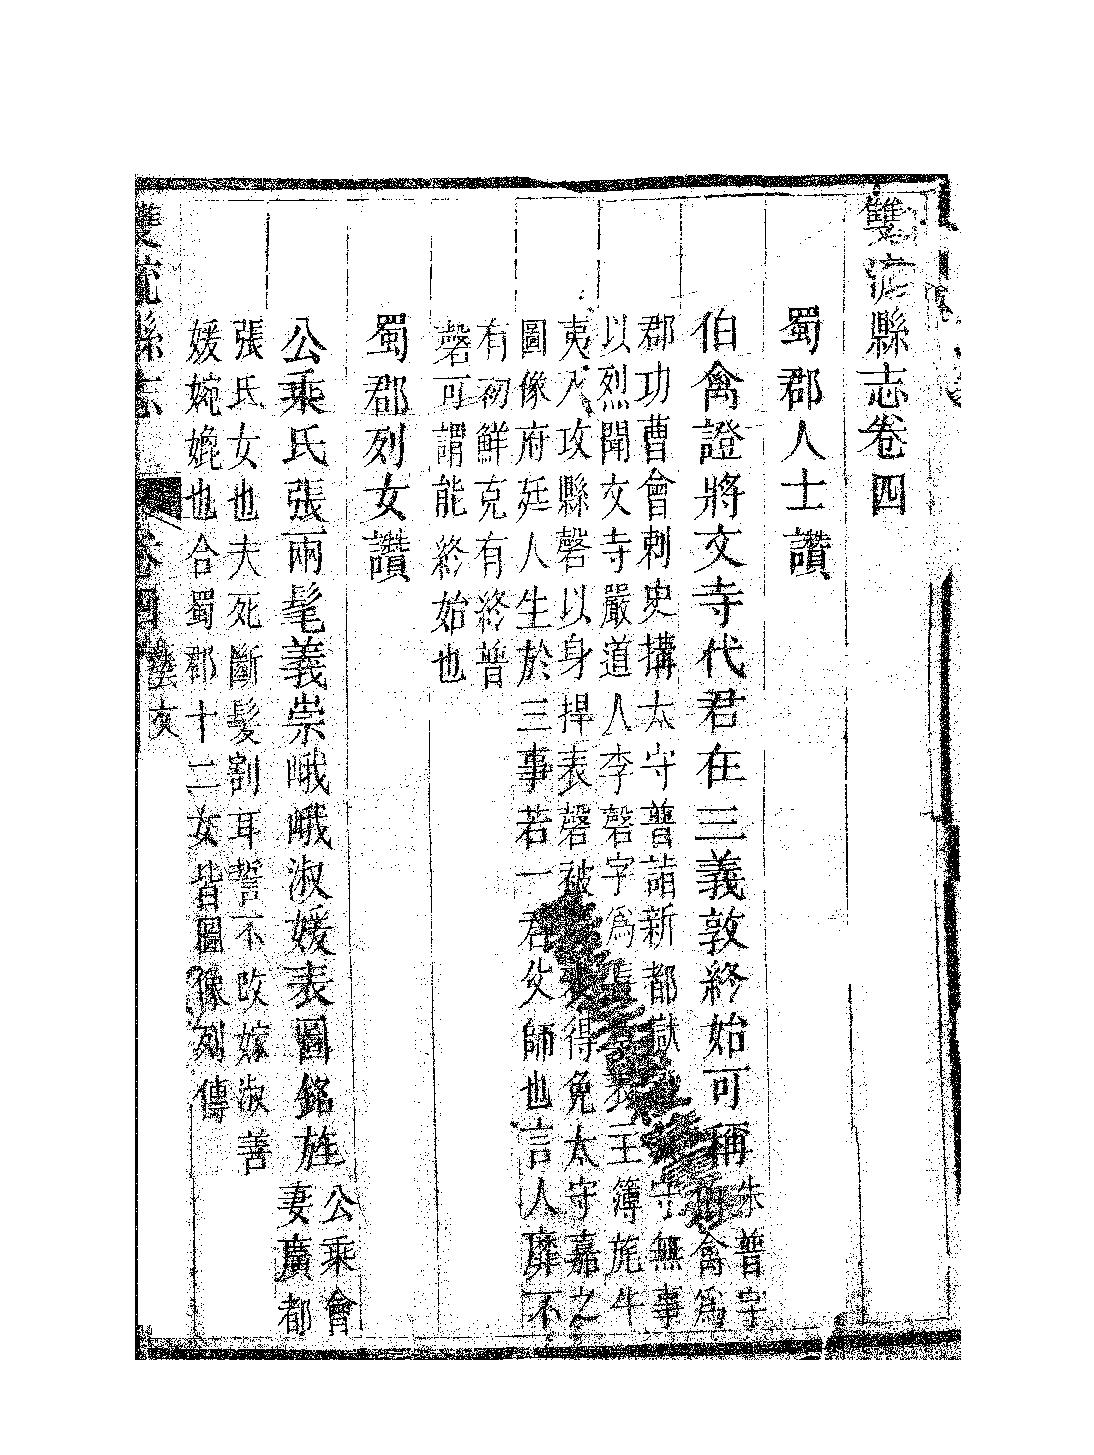 雙流縣志卷四
蜀郡人士讚
伯禽證將文寺代君在三義敦終始可稱
朱普字
伯禽為
郡功曹會刺史搆太守普詣新都獄　　守無事
以烈聞文寺嚴道人李磬字為張　　主簿旄牛
夷入攻縣磬以身捍表磬被　表得免太守嘉之
圖像府廷人生於三事若一君父師也言人靡不
有初鮮克有終普
磬可謂能終始也
蜀郡列女讚
公乘氏張兩髦義崇峨峨淑媛表圖銘旌
公乘會
妻廣都
張氏女也夫死斷髮割耳誓不改嫁淑善
媛婉娩也合蜀郡十二女皆圖像列傳
雙流縣志
卷四
藝文